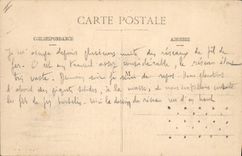 CARTE POSTALE
CORRESPONDANCE
ADRESSE
Je m'occupe depuis plusieurs nuits des réseaux de fil de
fer. C'est un travail assez considérable, le réseau
très vaste. Demain soir je de repos. Nous plantons
d'abord des piquets solides, à la masse, et nous installons ensuite
les fils de fer barbelés. Voici le dessin du réseau vu d'en haut